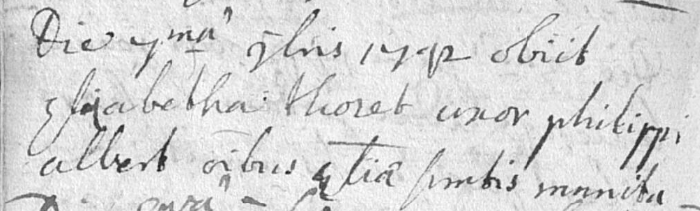 Die 7ma 9bris 1792 obiit
Elisabetha thoret uxor philippi
albert oibus Ecliae smtis munita